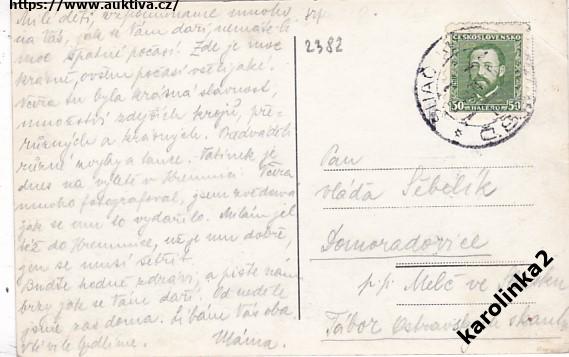 https://www.auktiva.cz/
Milé děti, vzpomínáme mnoho
na Vás, jak se Vám daří, nemáte-li
moc špatné počasí. Zde je moc
krásně, ovšem počasí všelijaké.
Včera tu byla krásná slavnost,
množství zdejších krojů, pře-
různých a krásných. Předváděli
různé zvyky a tance. Tatínek je
dnes na výletě v Kremnici. Včera
mnoho fotografoval, jsem zvědavá
jak se mu to vydařilo. Milán jel
též do Kremnice, už je mu dobře,
jen se musí šetřit.
Buďte hodně zdrávi, a pište nám
brzy jak se Vám daří. Od neděle
jsme zas doma. Líbám Vás oba
Máma.
2382
ČESKOSLOVENSKO
50 HALÉŘŮ 50
SLIAČ
Pan
vláďa Šebelík
Domoradovice
p.p. Melč ve
Tábor Ostravský
karolinka2